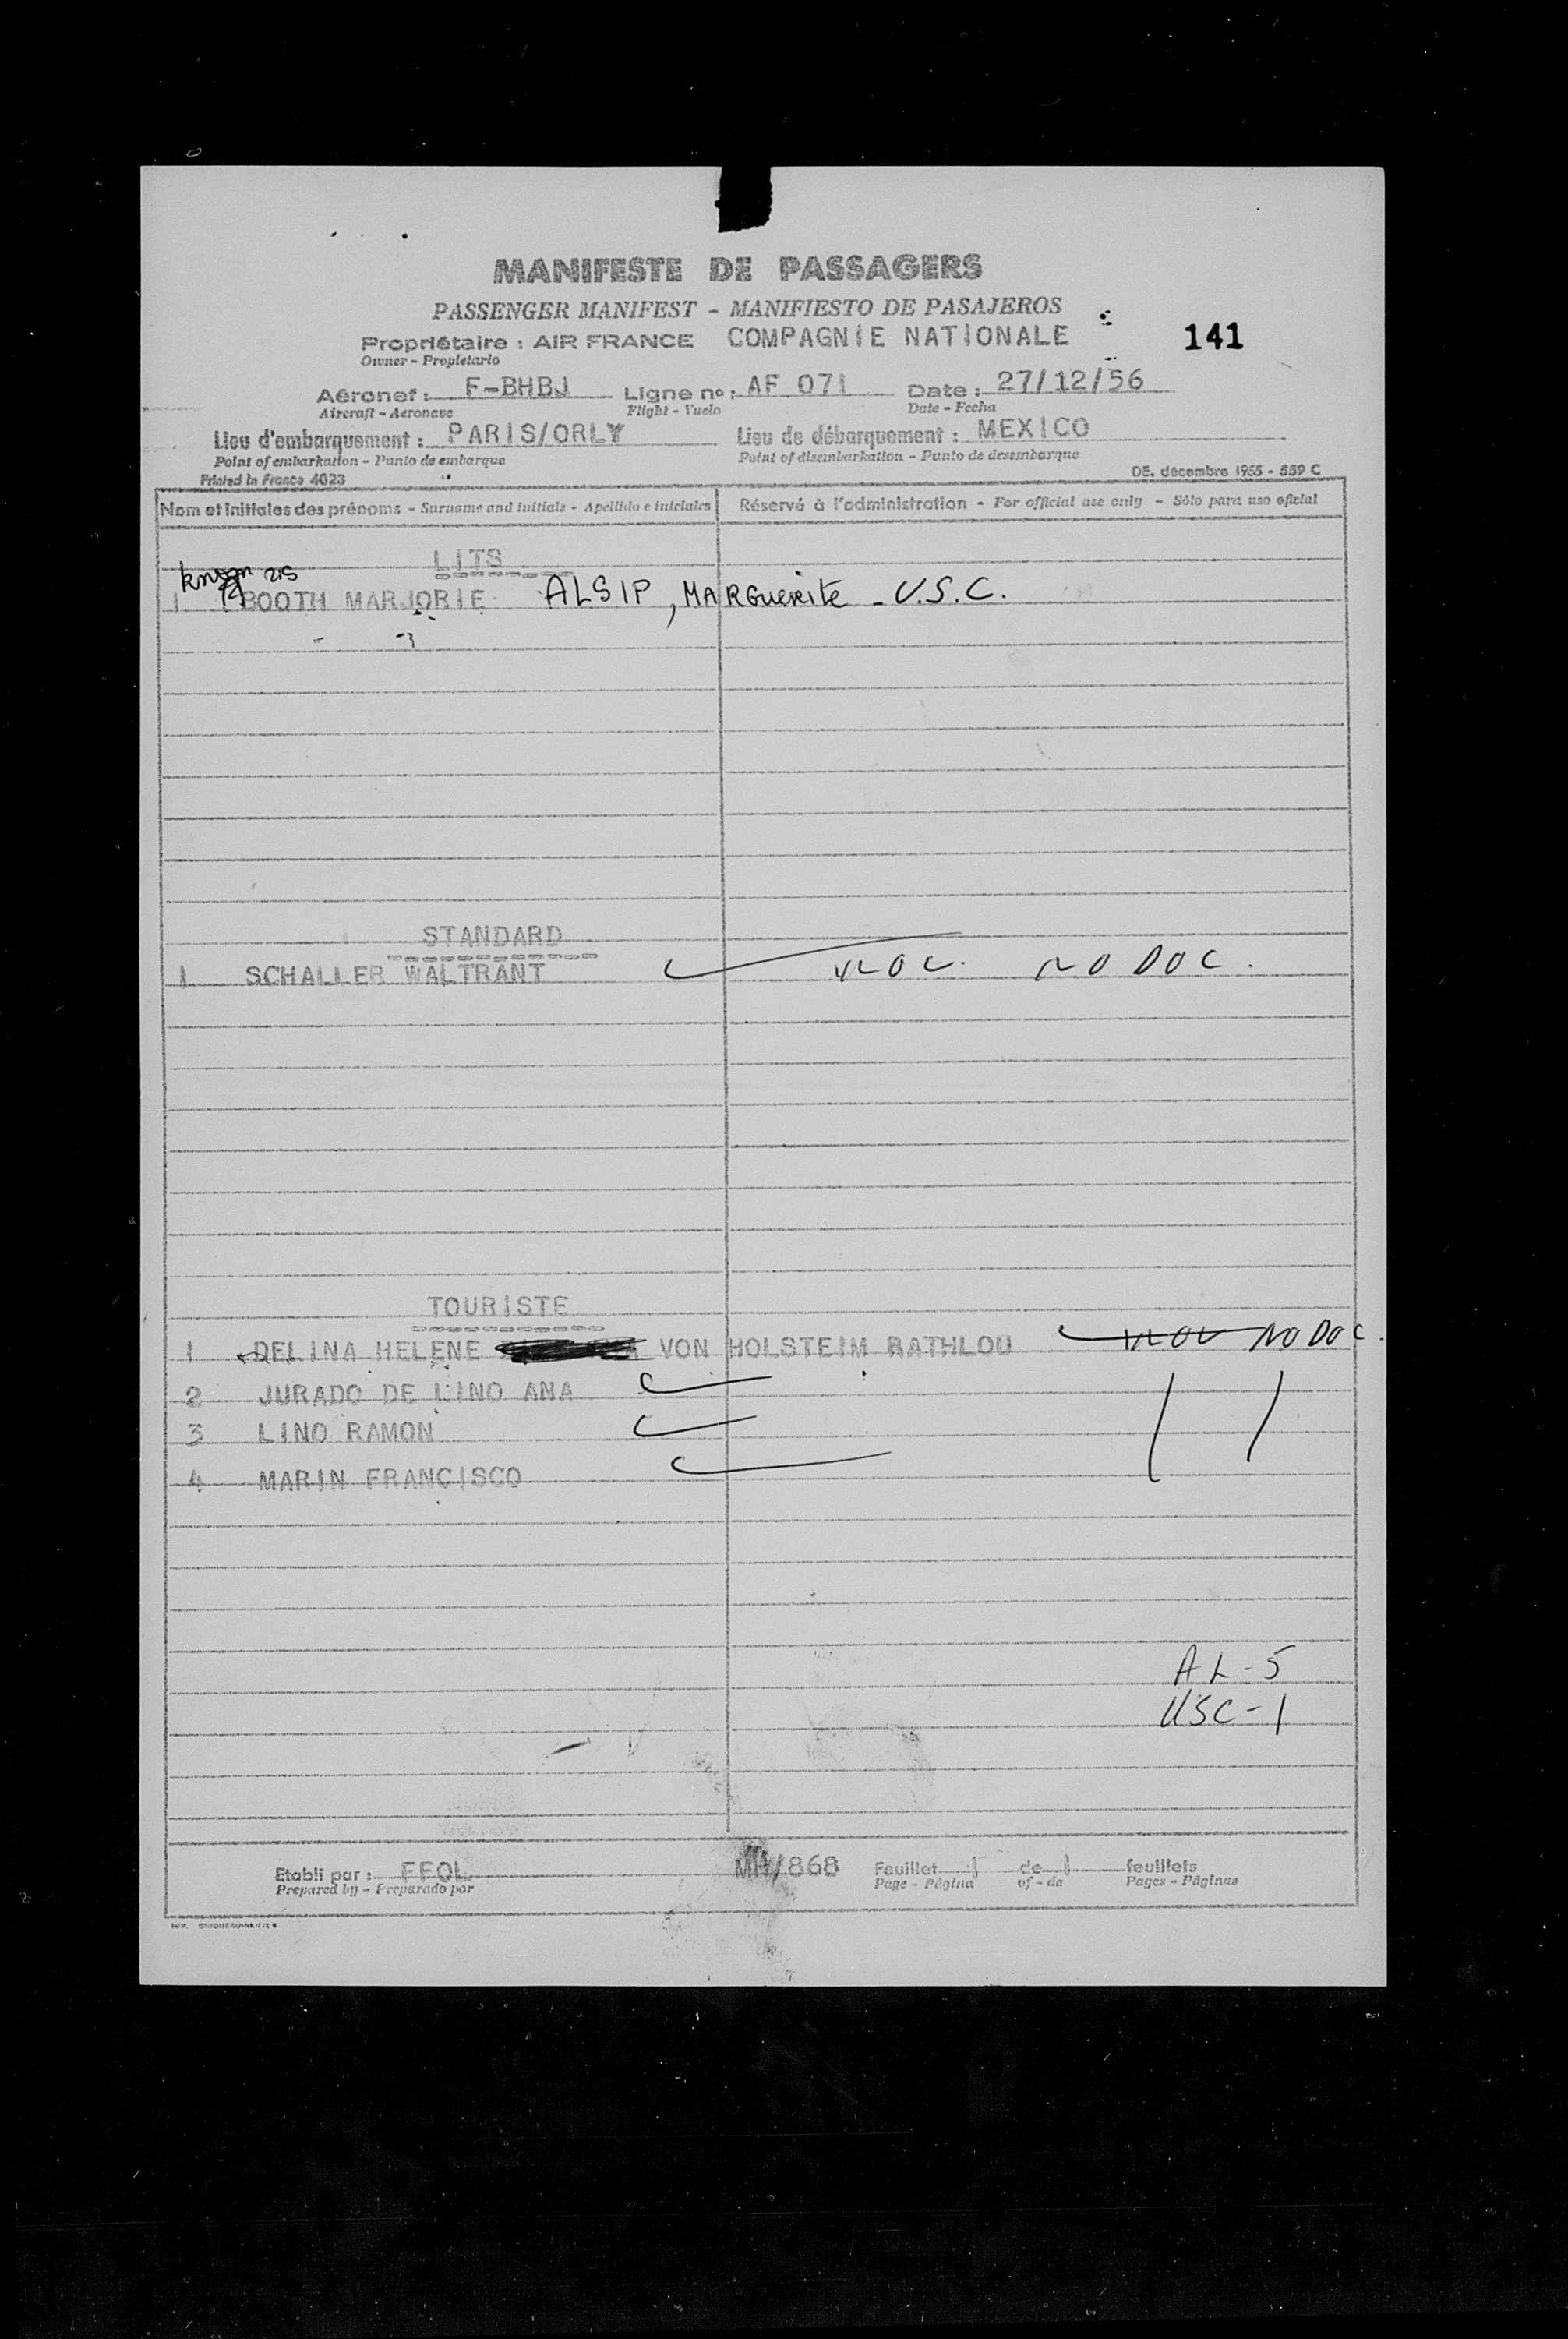 MANIFESTE DE PASSAGERS
PASSENGER MANIFEST - MANIFIESTO DE PASAJEROS
Propriétaire : AIR FRANCE COMPAGNIE NATIONALE 141
Owner - Propietario
Aéronef : F-BHBJ Ligne no : AF 071 Date : 27/12/56
Aircraft - Aeronave Flight - Vuelo Date - Fecha
Lieu d'embarquement : PARIS/ORLY Lieu de débarquement : MEXICO
Point of embarkation - Punto de embarque Point of disembarkation - Punto de desembarque
Printed in France 4023 DE. décembre 1955 - 559 C
Nom et initiales des prénoms - Surname and initials - Apellido e iniciales Réservé à l'administration - For official use only - Sólo para uso oficial
LITS
1 BOOTH MARJORIE ALSIP, MARGUERITE - U.S.C.
STANDARD
1 SCHALLER WALTRANT NO DOC.
TOURISTE
1 DELINA HELENE VON HOLSTEIM RATHLOU NO DOC.
2 JURADO DE LINO ANA
3 LINO RAMON
4 MARIN FRANCISCO
AL-5
USC-1
Etabli par : FFOL /868 Feuillet 1 de 1 feuillets
Prepared by - Preparado por Page - Página of - de Pages - Páginas